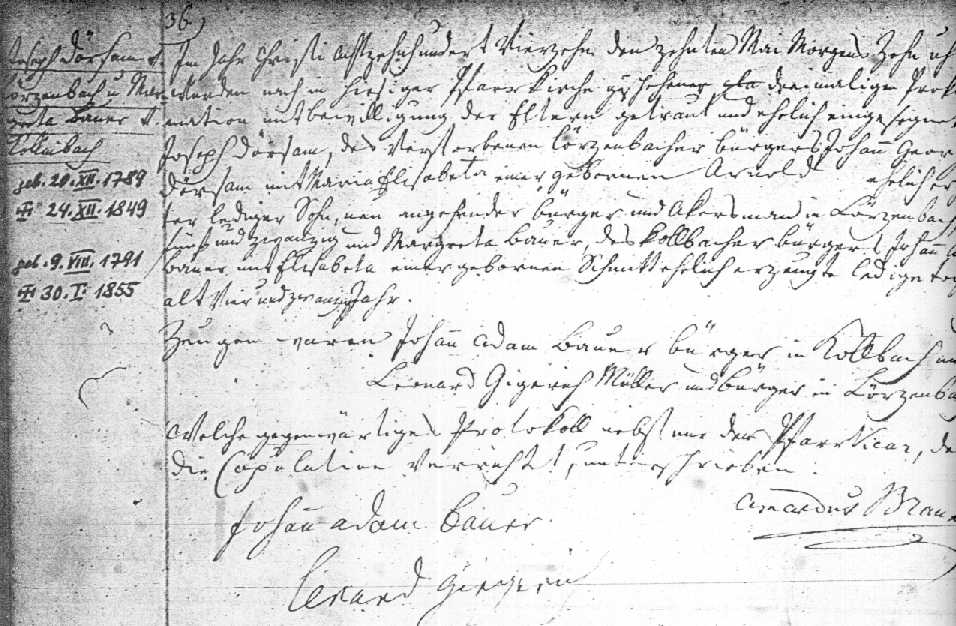 36
Joseph Dörsam v.
Lörzenbach u Mar-
greta Bauer v.
Kollmbach
geb. 20. XII. 1789
24. XII. 1849
geb. 9. VIII. 1791
30. I. 1855
Im Jahr Christi Achtzehnhundert Vierzehn den zehnten Mai Morgens Zehn uh
wurden nach in hiesiger Pfarrkirche geschehener dreimaliger Prokl
mation mit beiwilligung der Eltern getraut und ehelich eingesegnet
Joseph Dörsam, des Verstorbenen Lörzenbacher bürgers Johann Geor
Dörsam mit Maria Elisabeta einer gebornen Arnold ehelich er
ter lediger Sohn, neu angehender bürger und Akersmann in Lörzenbach
fünf und zwanzig und Margreta Bauer, des Kollbacher bürgers Johann
Bauer mit Elisabeta einer gebornen Schmitt ehelich erzeugte ledige toch
alt Vier und zwanzig Jahr.
Zeugen waren Johann Adam Bauer bürger in Kollbach un
Leonard Gigerich Müller und bürger in Lörzenba
Welche gegenwärtiges Protokoll nebst mir der Pfarrvicar, de
die Copulation verricht, unterschrieben.
Johann adam Bauer
Amandus
Lenard